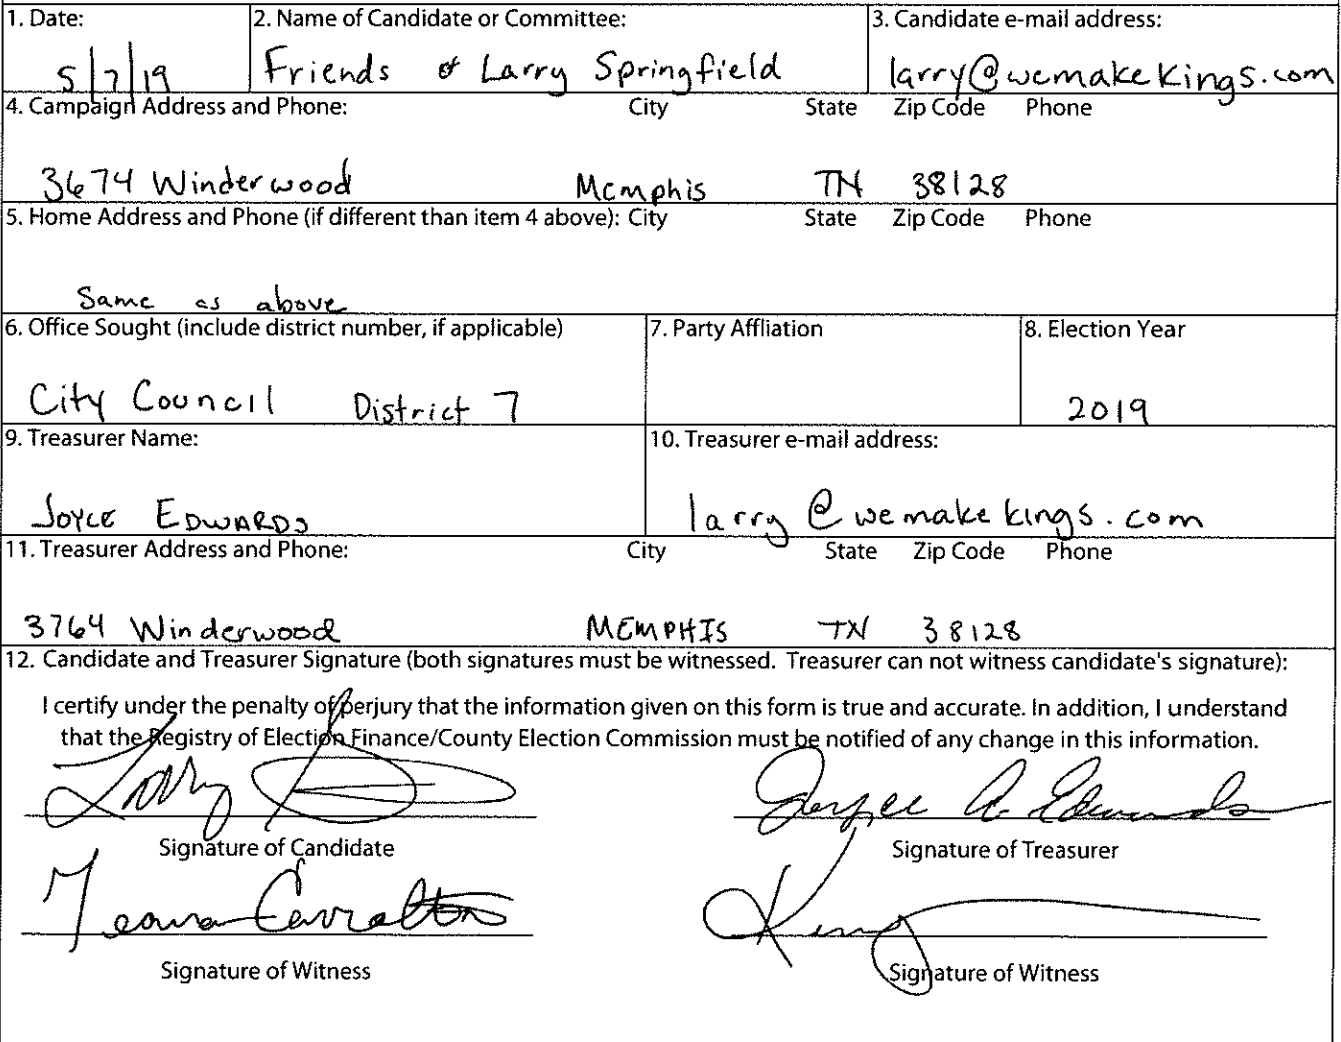 1. Date: 2. Name of Candidate or Committee: 3. Candidate e-mail address:
5/7/19 Friends of Larry Springfield larry@wemakekings.com
4. Campaign Address and Phone: City State Zip Code Phone
3674 Winderwood Memphis TN 38128
5. Home Address and Phone (if different than item 4 above): City State Zip Code Phone
Same as above
6. Office Sought (include district number, if applicable) 7. Party Affliation 8. Election Year
City Council District 7 2019
9. Treasurer Name: 10. Treasurer e-mail address:
Joyce Edwards larry@wemakekings.com
11. Treasurer Address and Phone: City State Zip Code Phone
3764 Winderwood MEMPHIS TN 38128
12. Candidate and Treasurer Signature (both signatures must be witnessed. Treasurer can not witness candidate's signature):
I certify under the penalty of perjury that the information given on this form is true and accurate. In addition, I understand
that the Registry of Election Finance/County Election Commission must be notified of any change in this information.
Larry Joyce A. Edwards
Signature of Candidate Signature of Treasurer
Signature of Witness Signature of Witness